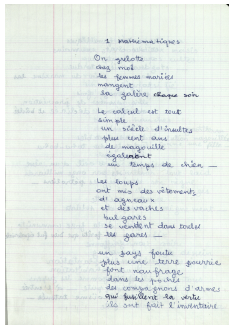 1 Mathématiques
On grelotte
chez moi
les femmes mariées
mangent
la galère chaque soir
Le calcul est tout
simple
un siècle d'insultes
plus cent ans
de magouille
égalent
un temps de chien —
Les loups
ont mis des vêtements
d'agneaux
et des vaches
bulgares
se vendent dans toutes
les gares —
un pays foutu
plus une terre pourrie
font naufrage
dans les poches
des compagnons d'armes
qui fusillent la vertu
ils ont fait l'inventaire